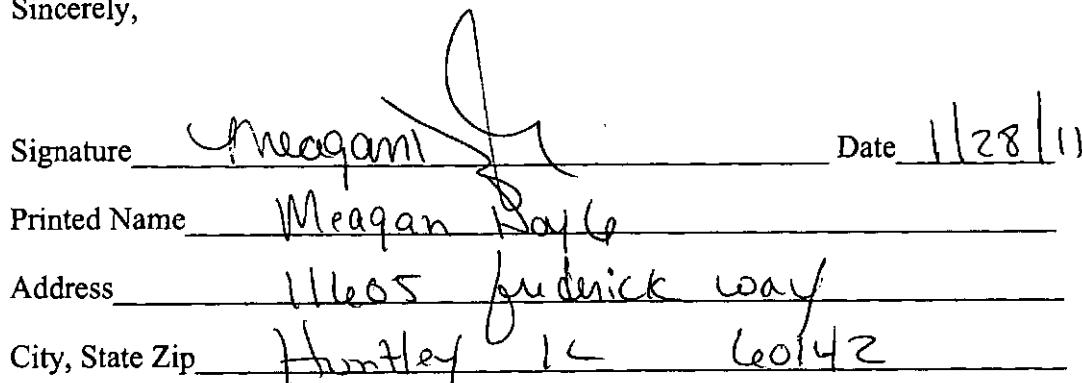 Sincerely,
Signature Meagan Date 1/28/11
Printed Name Meagan
Address 11605 frederick way
City, State Zip Huntley IL 60142